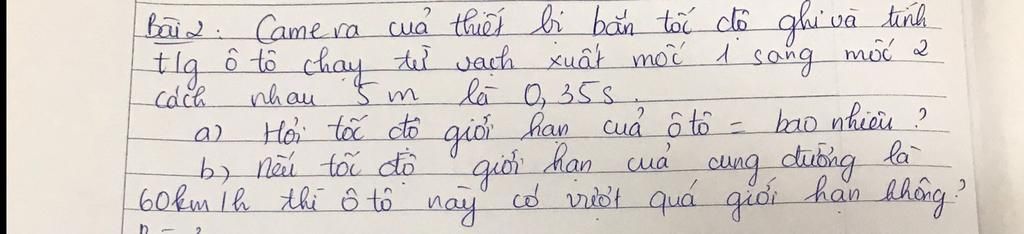 Bài 2: Camera cuả thiết bi bắn tốc độ ghi và tính
t/g ô tô chạy từ vạch xuất mốc 1 sang mốc 2
cách nhau 5m là 0,35s.
a) Hỏi tốc độ giới hạn cuả ô tô = bao nhiêu?
b) Nếu tốc độ giới hạn cuả cung đường là
60km/h thì ô tô này có vượt quá giới hạn không?